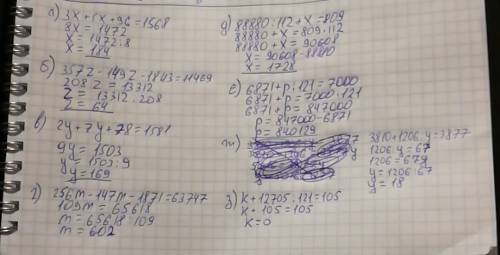 а) 3x+5x+96=1568
8x=1472
x=1472:8
x=184
б) 357z-149z-1843=11469
208z=13312
z=13312:208
z=64
в) 2y+7y+78=1581
9y=1503
y=1503:9
y=169
г) 256m-147m-1871=63747
109m=65618
m=65618:109
m=602
д) 88880:112+x=809
88880+x=809·112
88880+x=90608
x=90608-88880
x=1728
е) 6871+p:121=7000
6871+p=7000·121
6871+p=847000
p=847000-6871
p=840129
ж)
3810+1206:y=3877
1206:y=67
1206=67y
y=1206:67
y=18
з) k+12705:121=105
k+105=105
k=0